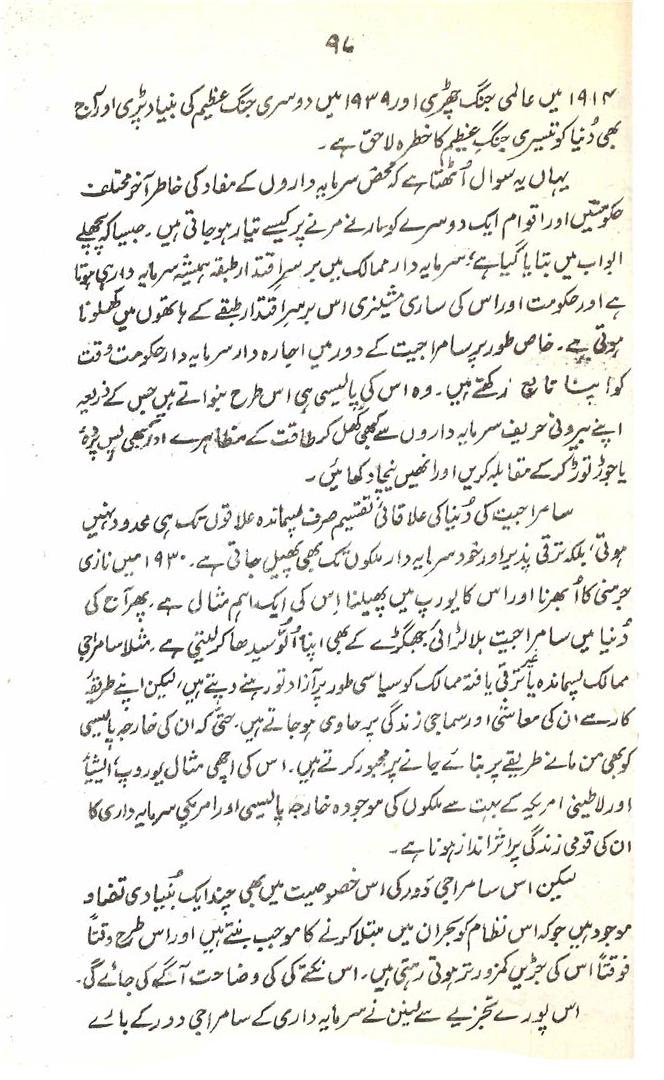 ۹۶
۱۹۱۴ میں عالمی جنگ چھڑی اور ۱۹۳۹ میں دوسری جنگ عظیم کی بنیاد پڑی اور آج
بھی دُنیا کو تیسری جنگ عظیم کا خطرہ لاحق ہے۔
یہاں یہ سوال اُٹھتا ہے کہ محض سرمایہ داروں کے مفاد کی خاطر آخر مختلف
حکومتیں اور اقوام ایک دوسرے کو مارنے مرنے پر کیسے تیار ہو جاتی ہیں۔ جیسا کہ پچھلے
ابواب میں بتایا گیا ہے، سرمایہ دار ممالک میں برسرِ اقتدار طبقہ ہمیشہ سرمایہ دار ہی ہوتا
ہے اور حکومت اور اس کی ساری مشینری اس برسرِ اقتدار طبقے کے ہاتھوں میں کھلونا
ہوتی ہے۔ خاص طور پر سامراجیت کے دور میں اجارہ دار سرمایہ دار حکومت وقت
کو اپنا تابع رکھتے ہیں۔ وہ اس کی پالیسی ہی اس طرح بنواتے ہیں جس کے ذریعہ
اپنے بیرونی حریف سرمایہ داروں سے کبھی کھل کر طاقت کے مظاہرے اور کبھی پس پردہ
یا جوڑ توڑ کر کے مقابلہ کریں اور انھیں نیچا دکھائیں۔
سامراجیت کی دُنیا کی علاقائی تقسیم صرف پسماندہ علاقوں تک ہی محدود نہیں
ہوتی، بلکہ ترقی پذیر اور خود سرمایہ دار ملکوں تک بھی پھیل جاتی ہے۔ ۱۹۳۰ میں نازی
جرمنی کا اُبھرنا اور اس کا یورپ میں پھیلنا اِس کی ایک اہم مثال ہے۔ پھر آج کی
دُنیا میں سامراجیت بلا لڑائی جھگڑے کے بھی اپنا اُلّو سیدھا کر لیتی ہے۔ مثلاً سامراجی
ممالک پسماندہ یا غیر ترقی یافتہ ممالک کو سیاسی طور پر آزاد تو رہنے دیتے ہیں، لیکن اپنے طریقۂ
کار سے ان کی معاشی اور سماجی زندگی پر حاوی ہو جاتے ہیں۔ حتّٰی کہ ان کی خارجہ پالیسی
کو بھی من مانے طریقے پر بنائے جانے پر مجبور کرتے ہیں۔ اس کی اچھی مثال یوروپ، ایشیا
اور لاطینی امریکہ کے بہت سے ملکوں کی موجودہ خارجہ پالیسی اور امریکی سرمایہ داری کا
ان کی قومی زندگی پر اثر انداز ہونا ہے۔
لیکن اس سامراجی دَور کی اس خصوصیت میں بھی چند ایک بُنیادی تضاد
موجود ہیں جو کہ اس نظام کو بحران میں مبتلا کرنے کا موجب بنتے ہیں اور اس طرح وقتاً
فوقتاً اس کی جڑیں کمزور تر ہوتی رہتی ہیں۔ اس نکتے کی کی وضاحت آگے کی جائے گی۔
اس پورے تجزیے سے لینن نے سرمایہ داری کے سامراجی دور کے بارے